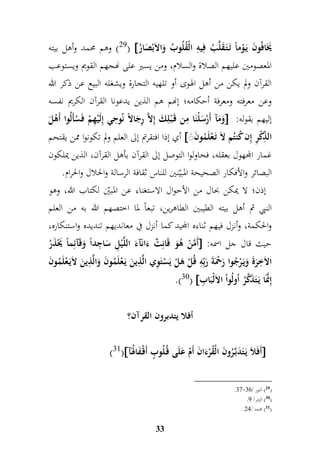 يَخَافُونَ يَوْماً تَتَقَلَّبُ فِيهِ الْقُلُوبُ وَالاَبْصَارُ] (29) وهم محمد وأهل بيته
المعصومين عليهم الصلاة والسلام، ومن يسير على نهجهم القويم ويستوعب
القرآن ولم يكن من أهل الهوى أو تلهيه التجارة ويشغله البيع عن ذكر الله
وعن معرفته ومعرفة أحكامه؛ إنهم هم الذين يدعونا القرآن الكريم نفسه
إليهم بقوله: [وَمَآ أَرْسَلْنَا مِن قَبْلِكَ إِلاَّ رِجَالاً نُوحِي إِلَيْهِمْ فَسْأَلُوا أَهْلَ
الذِّكْرِ إِن كُنتُم لاَ تَعْلَمُونَ] أي إذا افتقرتم إلى العلم ولم تكونوا ممن يقتحم
غمار المجهول بعقله، فحاولوا التوصل إلى القرآن بأهل القرآن، الذين يملكون
البصائر والأفكار الصحيحة المبيّنين للناس ثقافة الرسالة والحلال والحرام.
إذن؛ لا يمكن بحال من الأحوال الاستغناء عن المبيّن لكتاب الله، وهو
النبي ثم أهل بيته الطيبين الطاهرين، تبعاً لما اختصهم الله به من العلم
والحكمة، وأنزل فيهم ثناءه المجيد كما أنزل في معانديهم تنديده واستنكاره،
حيث قال جل اسمه: [أَمَّنْ هُوَ قَانِتٌ ءَانَآءَ اللَّيْلِ سَاجِداً وَقَآئِماً يَحْذَرُ
الاَخِرَةَ وَيَرْجُوا رَحْمَةَ رَبِّهِ قُلْ هَلْ يَسْتَوِي الَّذِينَ يَعْلَمُونَ وَالَّذِينَ لاَيَعْلَمُونَ
إِنَّمَا يَتَذَكَّرُ أُولُواْ الاَلْبَابِ] (30).
أفلا يتدبرون القرآن؟
[أَفَلاَ يَتَدَبَّرُونَ الْقُرْءَانَ أَمْ عَلَى قُلُوبٍ أَقْفَالُهَآ](31)
(29) النور /36-37.
(30) الزمر/ 9.
(31) محمد /24.
33